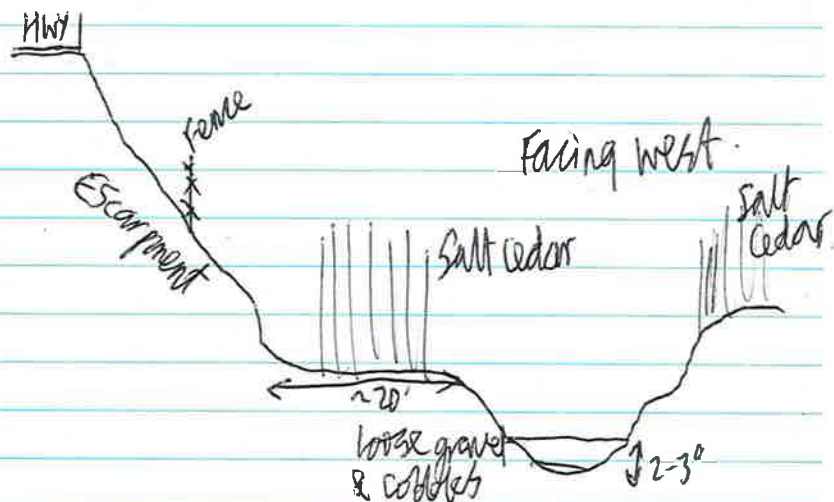 HWY
fence
Facing west.
Escarpment
Salt cedar
Salt
cedar
~20'
loose gravel
& cobbles
2-3"